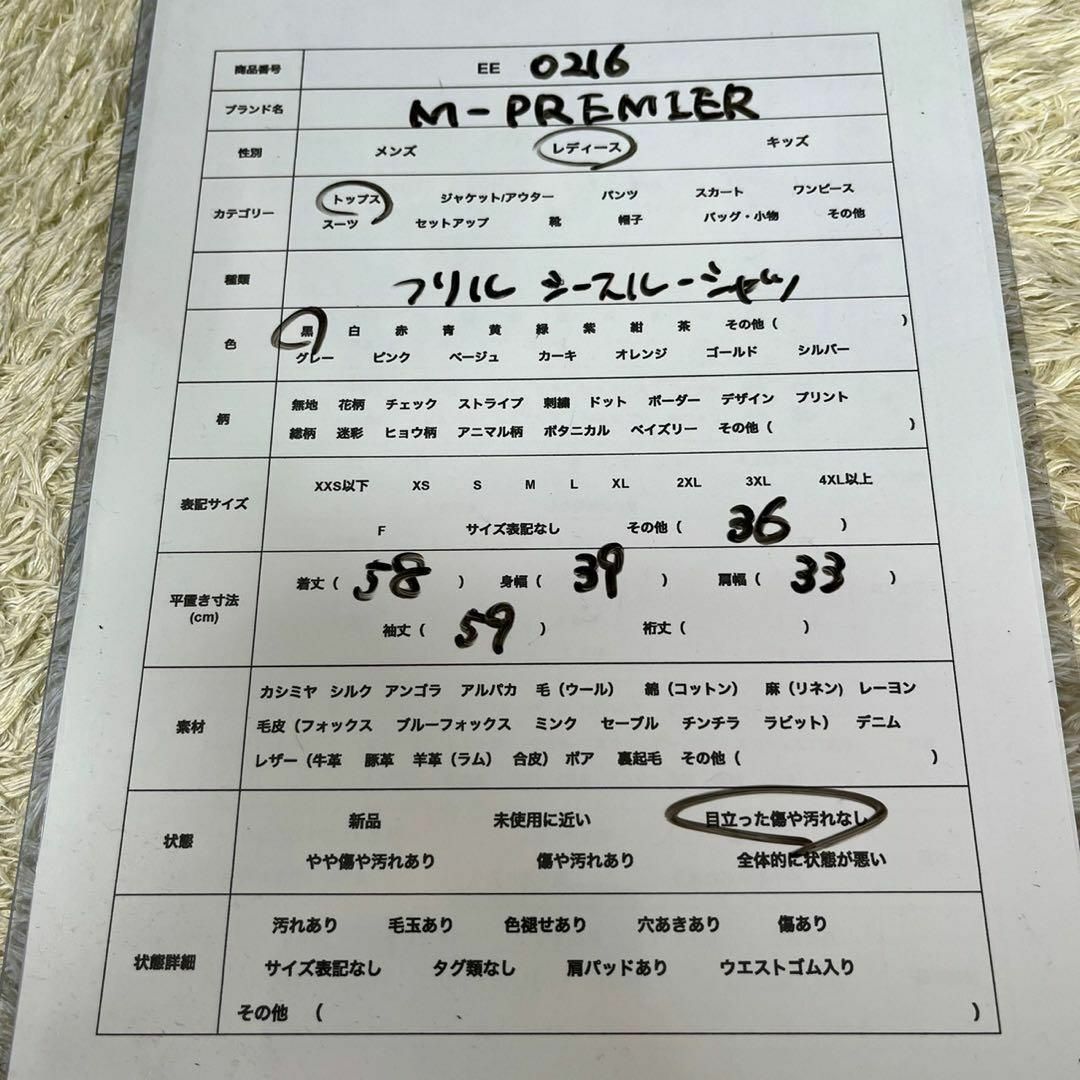 商品番号 EE 0216
ブランド名 M-PREMIER
性別 メンズ レディース キッズ
カテゴリー トップス ジャケット/アウター パンツ スカート ワンピース
スーツ セットアップ 靴 帽子 バッグ・小物 その他
種類 フリル シースルーシャツ
色 黒 白 赤 青 黄 緑 紫 紺 茶 その他( )
グレー ピンク ベージュ カーキ オレンジ ゴールド シルバー
柄 無地 花柄 チェック ストライプ 刺繍 ドット ボーダー デザイン プリント
総柄 迷彩 ヒョウ柄 アニマル柄 ボタニカル ペイズリー その他( )
表記サイズ XXS以下 XS S M L XL 2XL 3XL 4XL以上
F サイズ表記なし その他( 36 )
平置き寸法 (cm) 着丈( 58 ) 身幅( 39 ) 肩幅( 33 )
袖丈( 59 ) 裄丈( )
素材 カシミヤ シルク アンゴラ アルパカ 毛(ウール) 綿(コットン) 麻(リネン) レーヨン
毛皮(フォックス ブルーフォックス ミンク セーブル チンチラ ラビット) デニム
レザー(牛革 豚革 羊革(ラム) 合皮) ボア 裏起毛 その他( )
状態 新品 未使用に近い 目立った傷や汚れなし
やや傷や汚れあり 傷や汚れあり 全体的に状態が悪い
状態詳細 汚れあり 毛玉あり 色褪せあり 穴あきあり 傷あり
サイズ表記なし タグ類なし 肩パッドあり ウエストゴム入り
その他 ( )